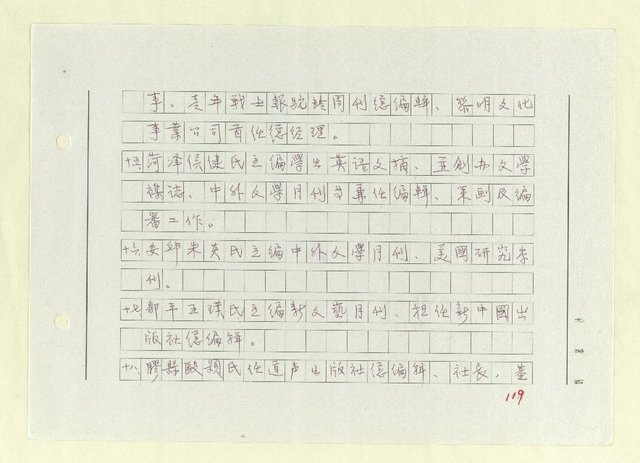 事、青年戰士報駝鈴周刊總編輯、黎明文化
事業公司首任總經理。
十五、菏澤侯健氏主編學生英語文摘、並創办文學
禖誌、中外文學月刊等專任編輯、策劃及編
審工作。
十六、安邱朱炎氏主編中外文學月刊、美國研究季
刊。
十七、鄒平王璞氏主編新文藝月刊、担任新中國出
版社總編輯。
十八、膠縣殷穎氏任道声出版社總編輯、社長，基
119